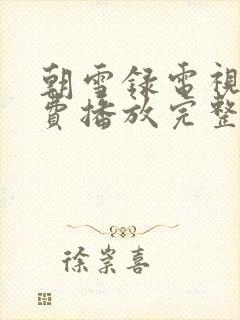 朝雪録電視
費播放完整
徐崇喜